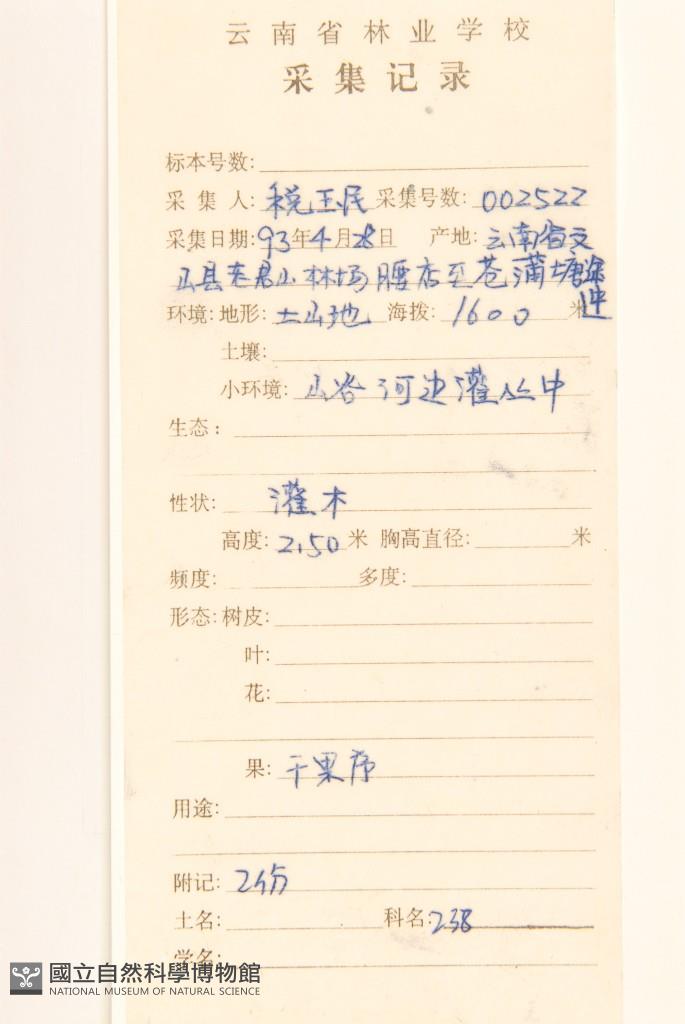 云南省林业学校
采集记录
标本号数:
采集人: 税玉民 采集号数: 002522
采集日期: 93年4月28日 产地: 云南省文
山县老君山林场腰店至菖蒲塘途
中
环境: 地形: 土山地 海拨: 1600 米
土壤:
小环境: 山谷河边灌丛中
生态:
性状: 灌木
高度: 2.50 米 胸高直径: 米
频度: 多度:
形态: 树皮:
叶:
花:
果: 干果序
用途:
附记: 2份
土名: 科名: 238
学名:
國立自然科學博物館
NATIONAL MUSEUM OF NATURAL SCIENCE